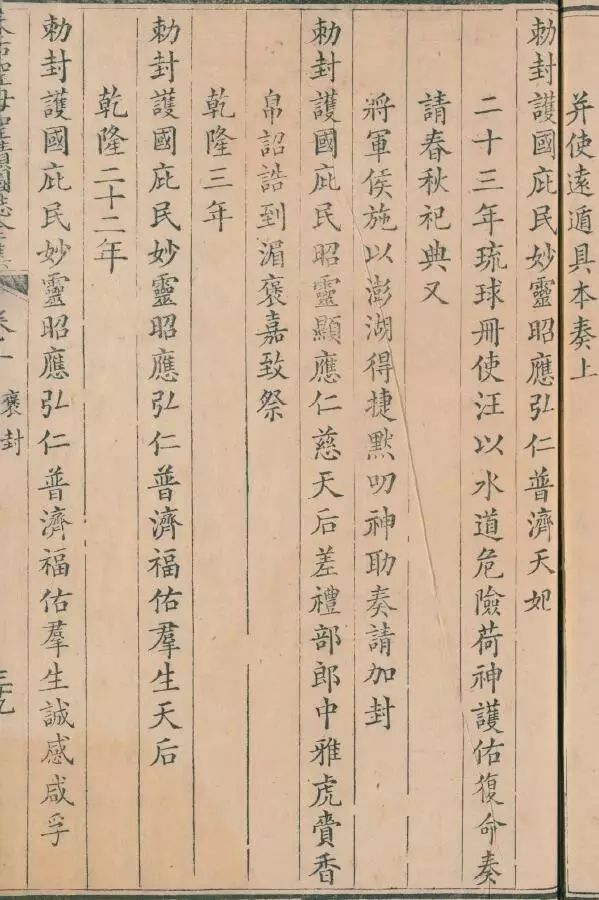 并使遠遁具本奏上
勅封護國庇民妙靈昭應弘仁普濟天妃
二十三年琉球冊使汪以水道危險荷神護佑復命奏
請春秋祀典又
將軍侯施以澎湖得捷黙叨神助奏請加封
勅封護國庇民昭靈顯應仁慈天后差禮部郎中雅虎賫香
帛詔誥到湄褒嘉致祭
乾隆三年
勅封護國庇民妙靈昭應弘仁普濟福佑羣生天后
乾隆二十二年
勅封護國庇民妙靈昭應弘仁普濟福佑羣生誠感咸孚
褒封